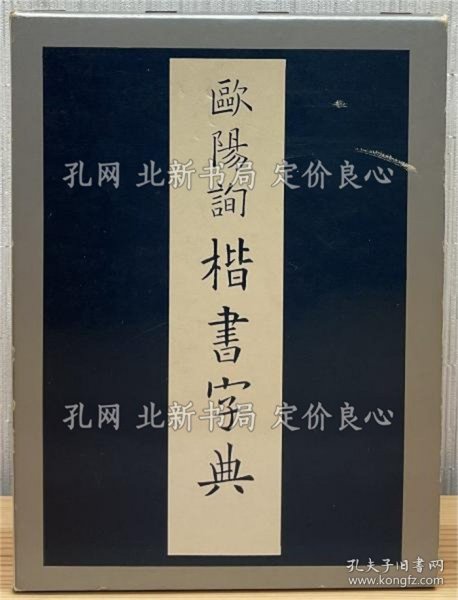 歐陽詢楷書字典
孔网 北新书局 定价良心
孔网 北新书局 定价良心
孔夫子旧书网
www.kongfz.com